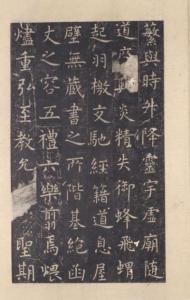 繁與時升降靈宇虛廟隨
道廢炎精失御蜂飛蝟
起羽檄交馳經籍道息屋
壁無藏書之所階基絕函
丈之容五禮六樂翦焉煨
燼重弘至教允聖期